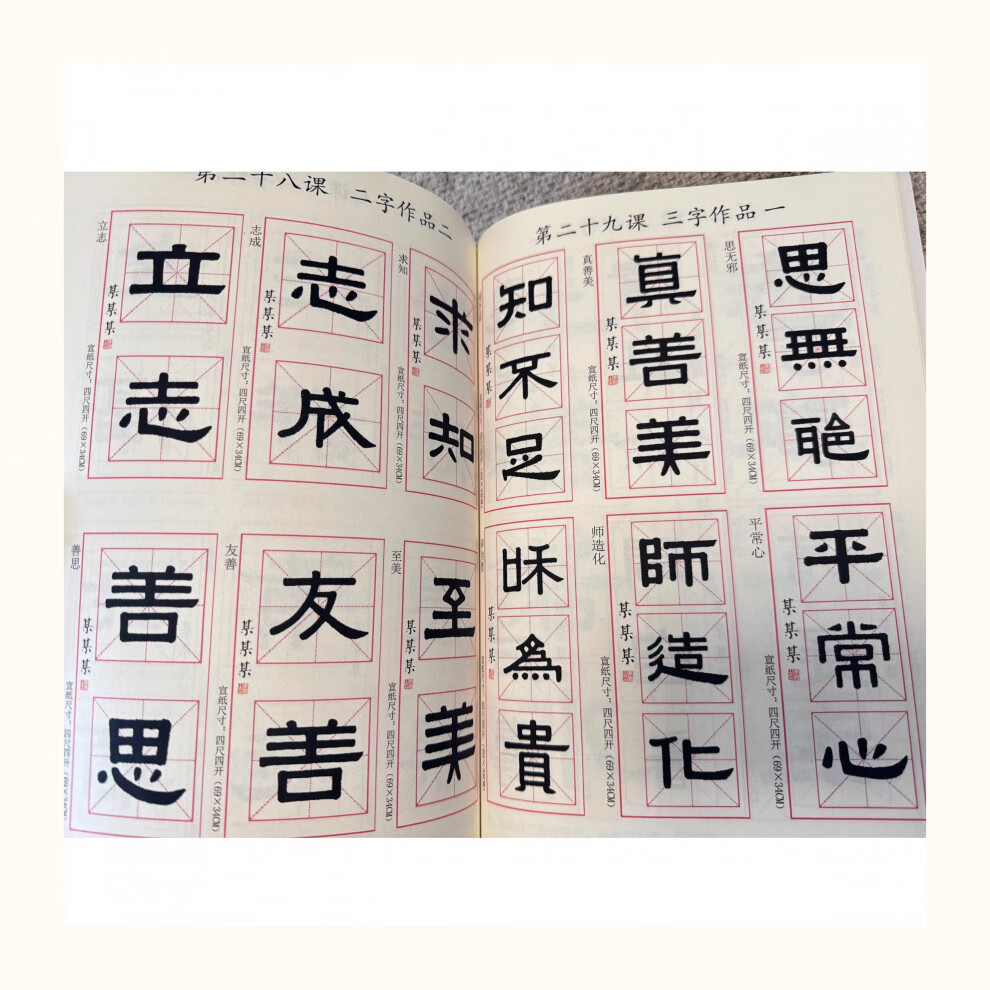 第二十八课 二字作品二
立志
立志
某某某
宣纸尺寸：四尺四开（69×34CM）
志成
志成
某某某
宣纸尺寸：四尺四开（69×34CM）
求知
求知
某某某
宣纸尺寸：四尺四开（69×34CM）
善思
善思
某某某
宣纸尺寸：四尺四开（69×34CM）
友善
友善
某某某
宣纸尺寸：四尺四开（69×34CM）
至美
至美
某某某
宣纸尺寸：四尺四开（69×34CM）
第二十九课 三字作品一
知不足
某某某
真善美
真善美
某某某
宣纸尺寸：四尺四开（69×34CM）
思无邪
思無
某某某
宣纸尺寸：四尺四开（69×34CM）
和為貴
某某某
师造化
師造化
某某某
宣纸尺寸：四尺四开（69×34CM）
平常心
平常心
某某某
宣纸尺寸：四尺四开（69×34CM）